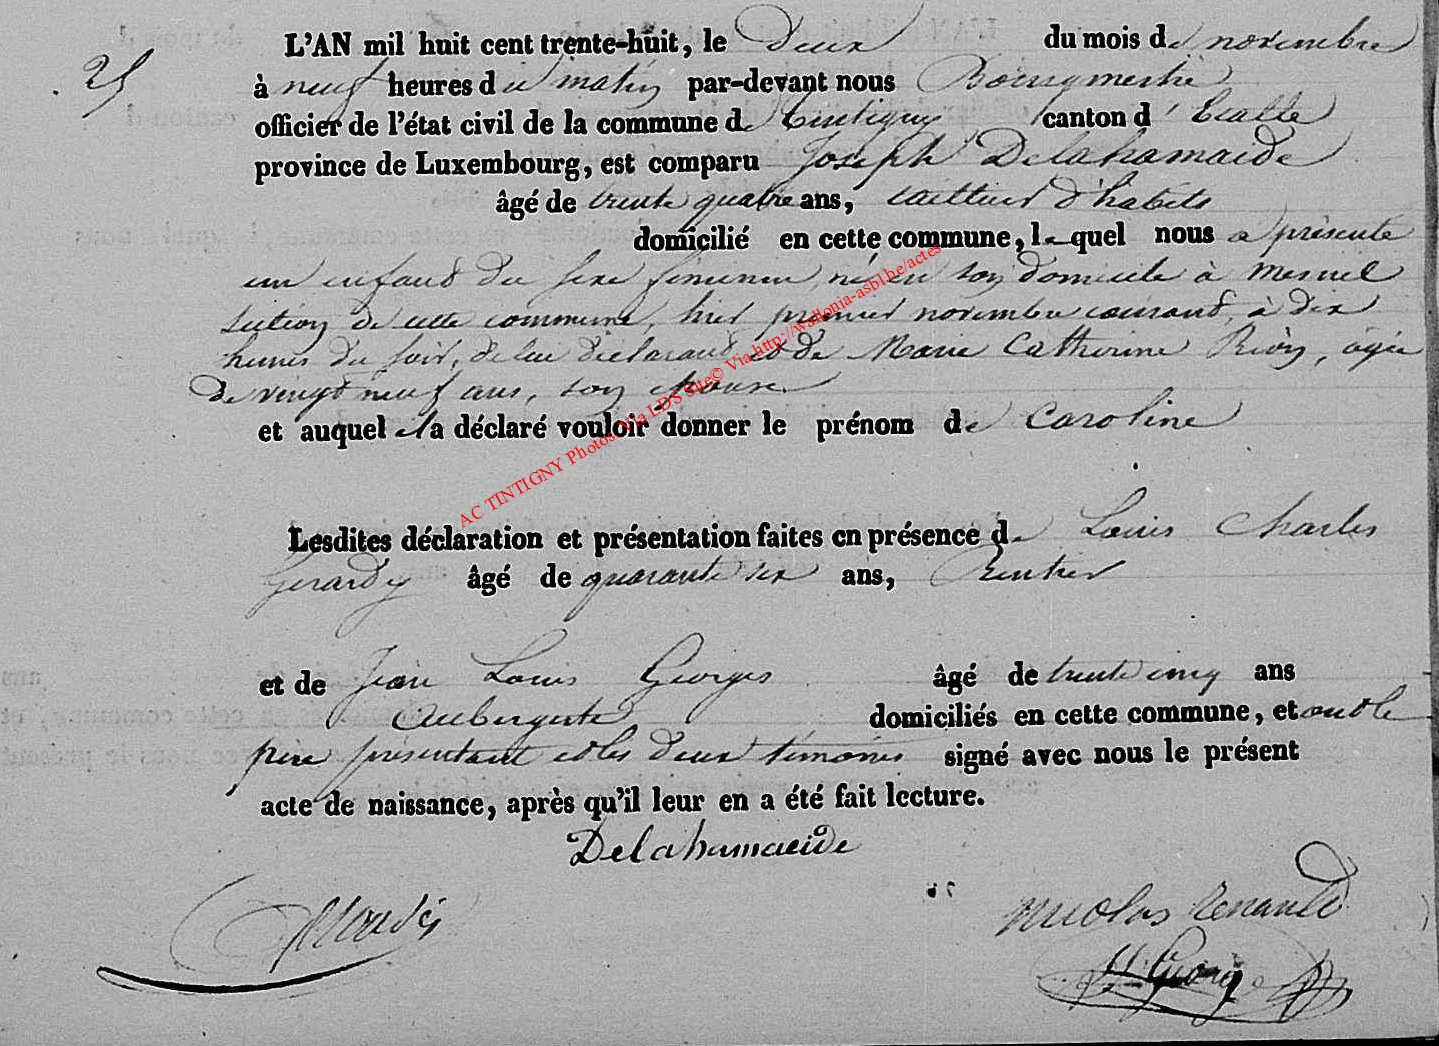 25
L'AN mil huit cent trente-huit, le Deux du mois de novembre
à neuf heures du matin par-devant nous Bourgmestre
officier de l'état civil de la commune de Tintigny canton d'Etalle
province de Luxembourg, est comparu Joseph Delahamaide
âgé de trente quatre ans, tailleur d'habits
domicilié en cette commune, lequel nous a présenté
un enfant du sexe feminin, né en son domicile à
section de cette commune, hier premier novembre courant, à dix
heures du soir, de lui déclarant et de Marie Catherine, agée
de vingt neuf ans, son épouse
et auquel il a déclaré vouloir donner le prénom de Caroline
Lesdites déclaration et présentation faites en présence de Louis Charles
Gerardy âgé de quarante six ans, Rentier
et de Jean Louis Georges âgé de trente cinq ans
Aubergiste domiciliés en cette commune, et ont le
père présentant et les deux témoins signé avec nous le présent
acte de naissance, après qu'il leur en a été fait lecture.
Delahamaide
Nicolas Renauld
AC TINTIGNY Photos Via LDS Site© Via http://wallonia-asbl.be/actes